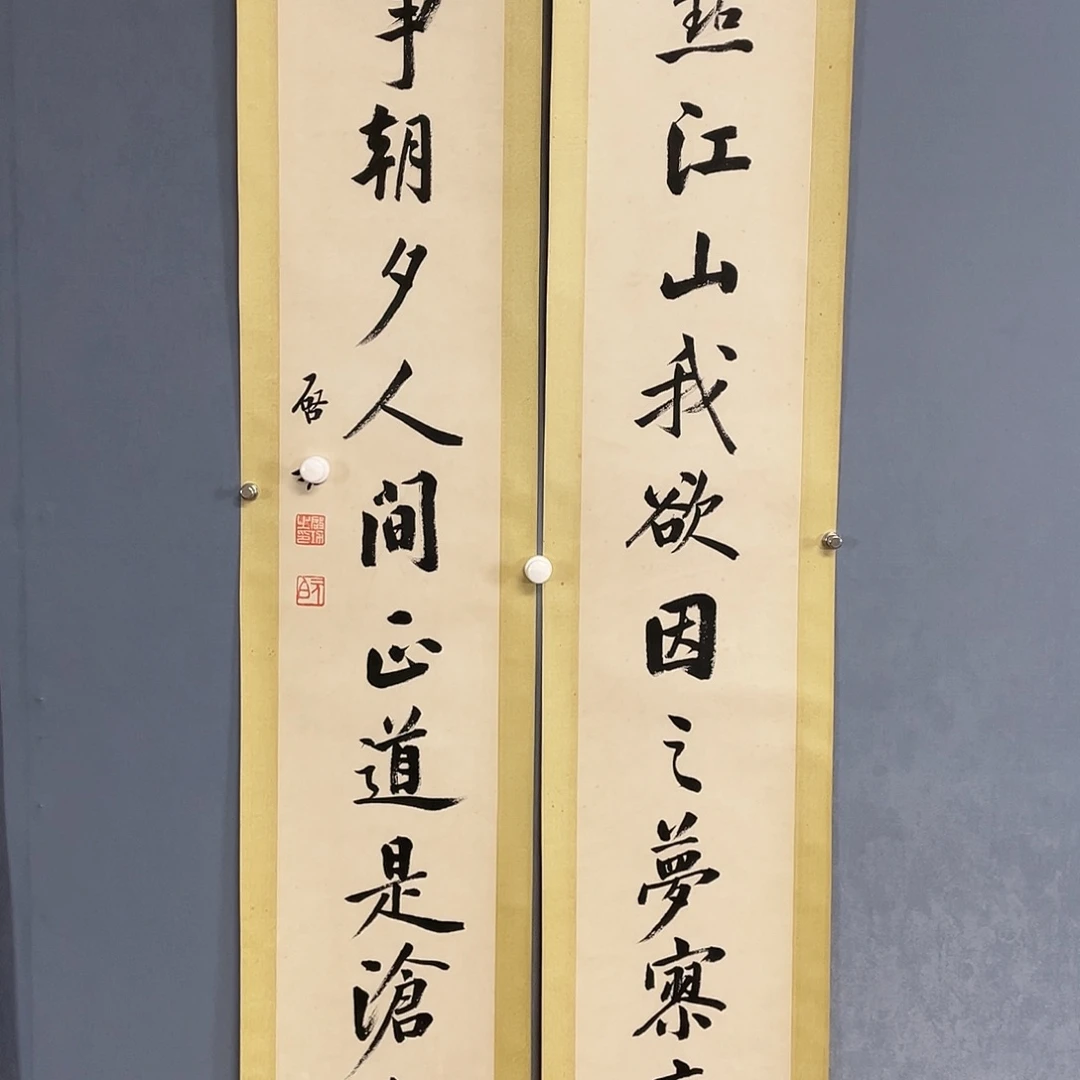 點江山我欲因之夢寥
爭朝夕人間正道是滄
啓